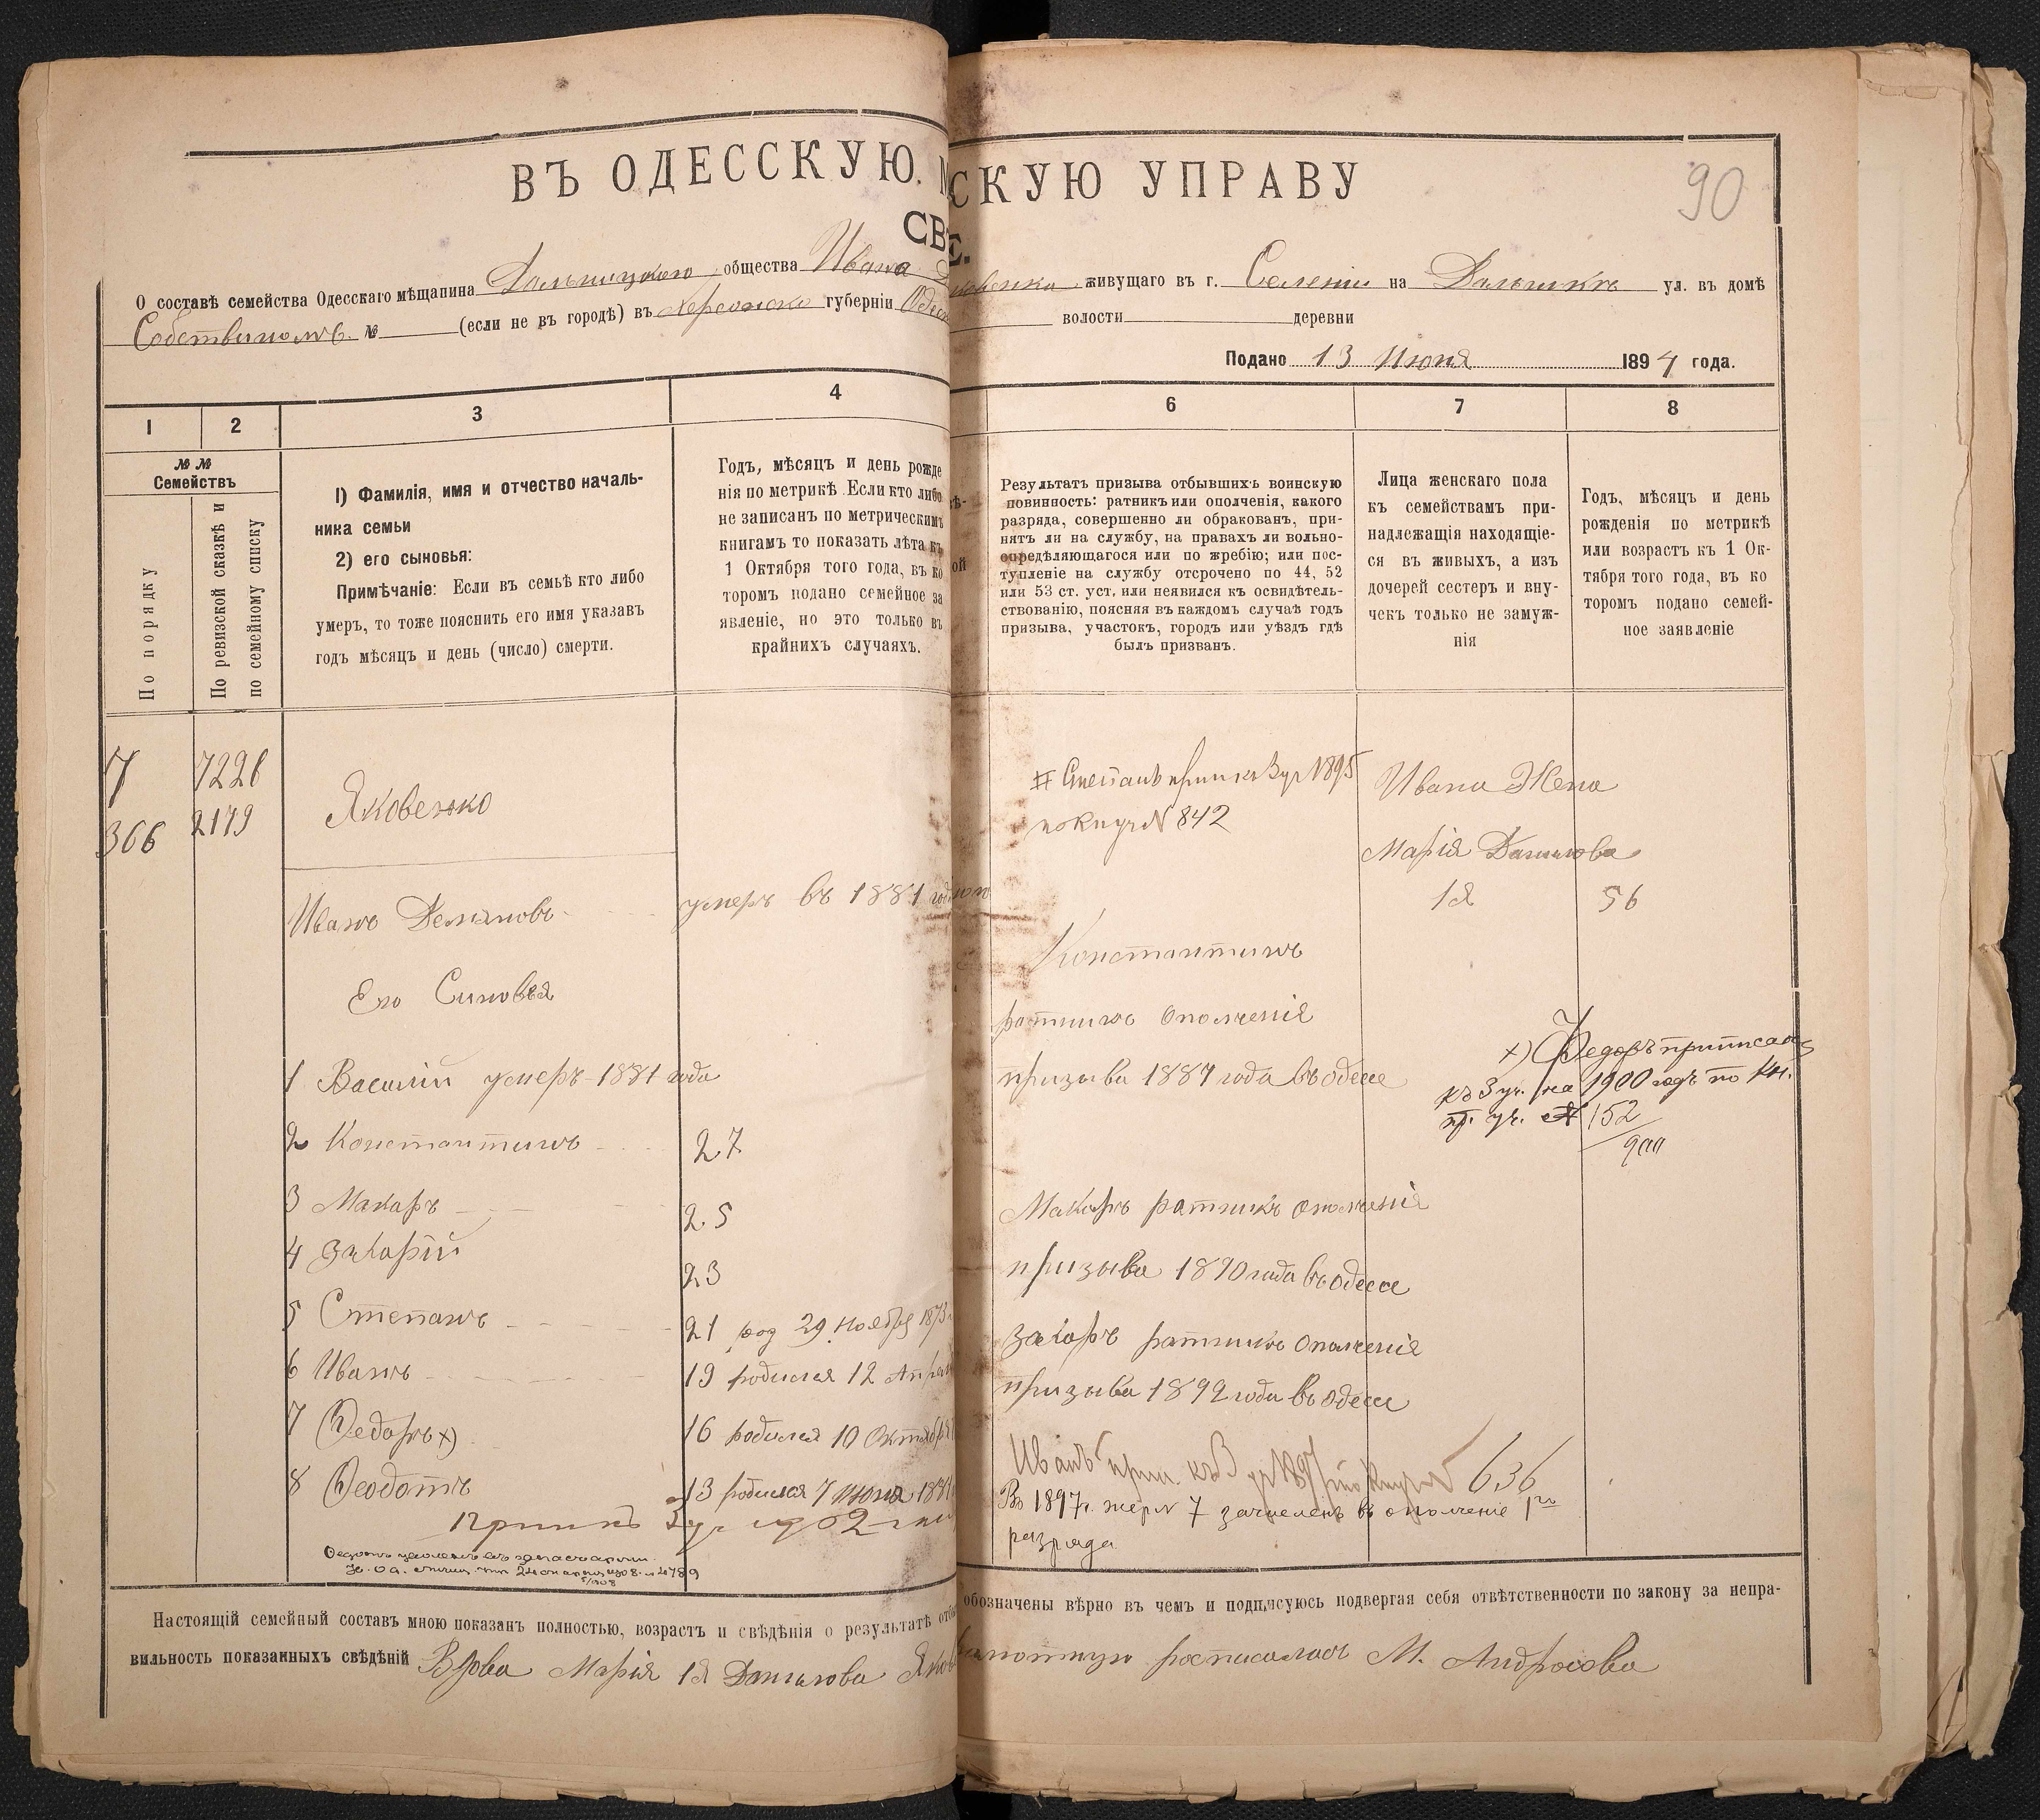 ВЪ ОДЕССКУЮ. М
СКУЮ УПРАВУ
90
СВ
Е.
О составѣ семейства Одесскаго мѣщанина Дальницкаго общества Ивана
живущаго въ г. Селеніи на Дальникъ ул. въ домѣ
Собственномъ. № (если не въ городѣ) въ Херсонско губерніи Одес
волости деревни
Подано 13 Июня 1894 года.
1
2
3
4
6
7
8
№ №
Семействъ
По порядку
По ревизской сказкѣ и
по семейному списку
1) Фамилія, имя и отчество началь-
ника семьи
2) его сыновья:
Примѣчаніе: Если въ семьѣ кто либо
умеръ, то тоже пояснить его имя указавъ
годъ мѣсяцъ и день (число) смерти.
Годъ, мѣсяцъ и день рожде
нія по метрикѣ Если кто либо
не записанъ по метрическимъ
книгамъ то показать лѣта къ
1 Октября того года, въ ко
торомъ подано семейное за
явленіе, но это только въ
крайнихъ случаяхъ.
Результатъ призыва отбывшихъ воинскую
повинность: ратникъ или ополченія, какого
разряда, совершенно ли обракованъ, при-
нятъ ли на службу, на правахъ ли вольно-
опредѣляющагося или по жребію; или пос-
тупленіе на службу отсрочено по 44, 52
или 53 ст. уст. или неявился къ освидѣтель-
ствованію, поясняя въ каждомъ случаѣ годъ
призыва, участокъ, городъ или уѣздъ гдѣ
былъ призванъ.
Лица женскаго пола
къ семействамъ при-
надлежащія находящіе-
ся въ живыхъ, а изъ
дочерей сестеръ и вну-
чекъ только не замуж-
нія
Годъ, мѣсяцъ и день
рожденія по метрикѣ
или возрастъ къ 1 Ок-
тября того года, въ ко
торомъ подано семей-
ное заявленіе
7
366
2179
Яковенко
Иванъ Демяновъ
умеръ въ 1881
Его Синовья
1 Василій умеръ 1881 года
2 Константинъ 27
3 Макаръ 25
4 Захарій 23
5 Степанъ 21 род 29 Ноября 1873
6 Иванъ 19 родился 12 Апрел
7 Федоръ x) 16 родился 10 Октября
8 Феодотъ 13 родился 7 Июня
# Степанъ 1895
№ 842
Константинъ
ратникъ Ополченія
призыва 1887 года въ Одессе
Макаръ ратникъ ополченія
призыва 1890 года въ Одессе
Захаръ ратникъ Ополченія
призыва 1892 года въ Одессе
Иванъ прип. къ 3 636
Въ 1897г. жер № 7 зачисленъ въ ополченіе 1го
разряда
Ивана Жена
Марія Данилова
1я 56
x) Федоръ приписанъ
къ 3 уч. на 1900 годъ по кн.
пр. уч. № 152
Настоящій семейный составъ мною показанъ полностью, возрастъ и свѣдѣнія о результатѣ отбы
обозначены вѣрно въ чемъ и подписуюсь подвергая себя отвѣтственности по закону за непра-
вильность показанныхъ свѣдѣній Вдова Марія 1я Данилова Яков
росписалась М. Андросова